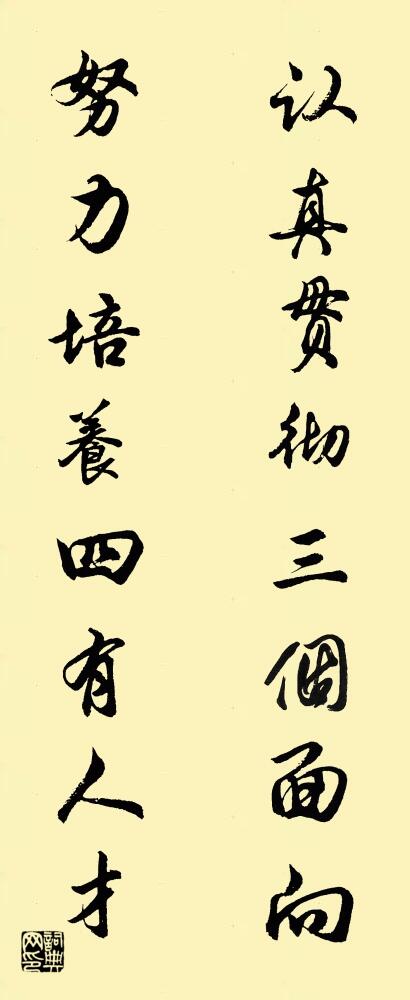 认真贯彻三個面向
努力培養四有人才
詞典网印